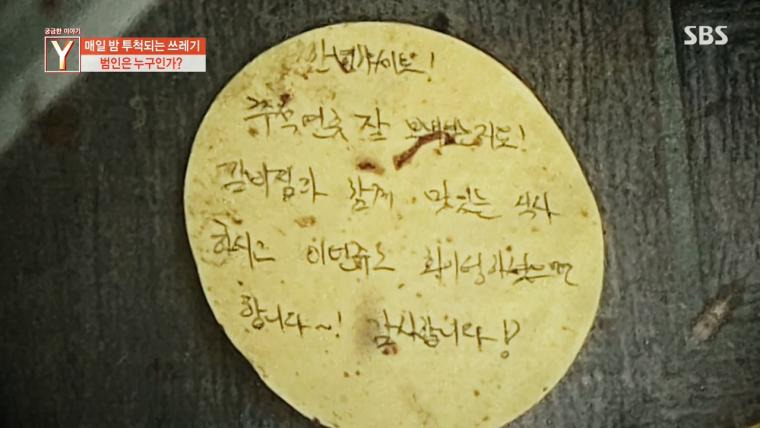 궁금한 이야기
Y
매일 밤 투척되는 쓰레기
범인은 누구인가?
SBS
안녕하세요!
추석연휴 잘
맛있는 식사
하시고 이번주도 화이팅
합니다~! 감사합니다!